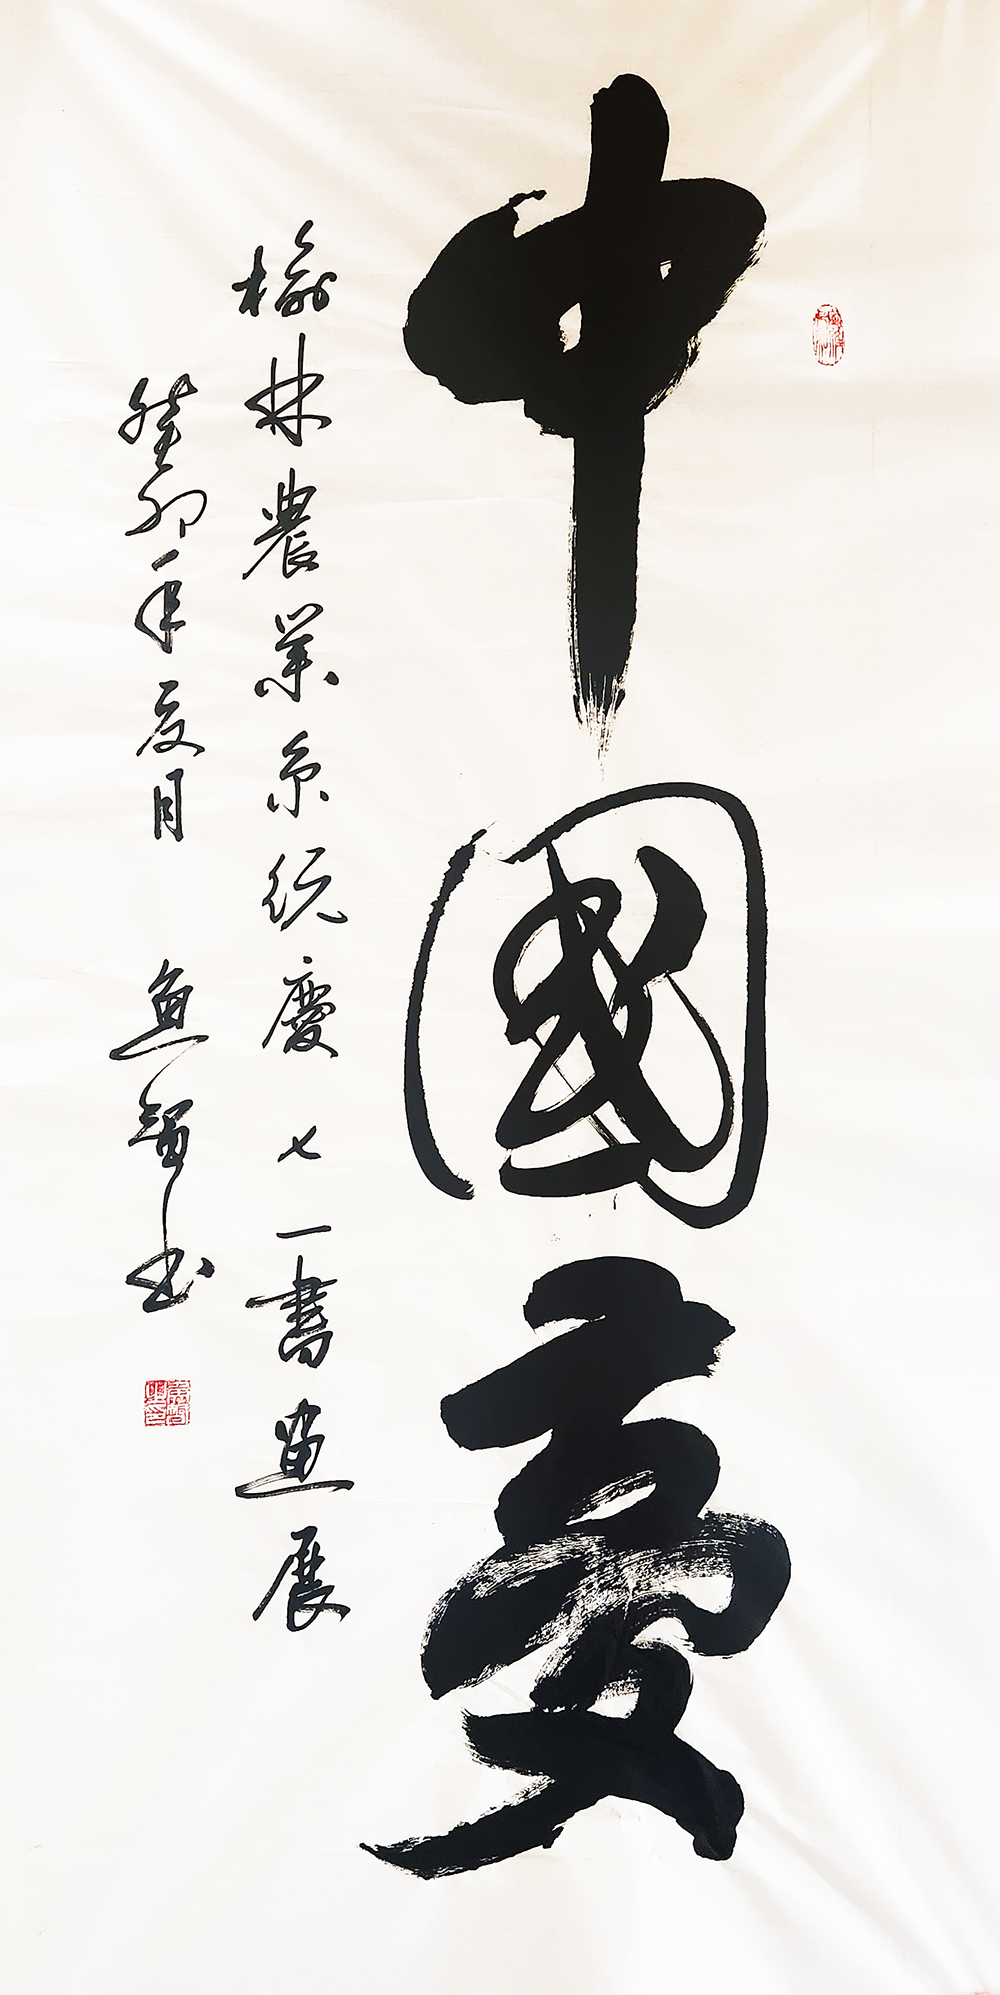 中國夢
榆林農業系统慶七一書畫展
癸卯年夏月 魚智书